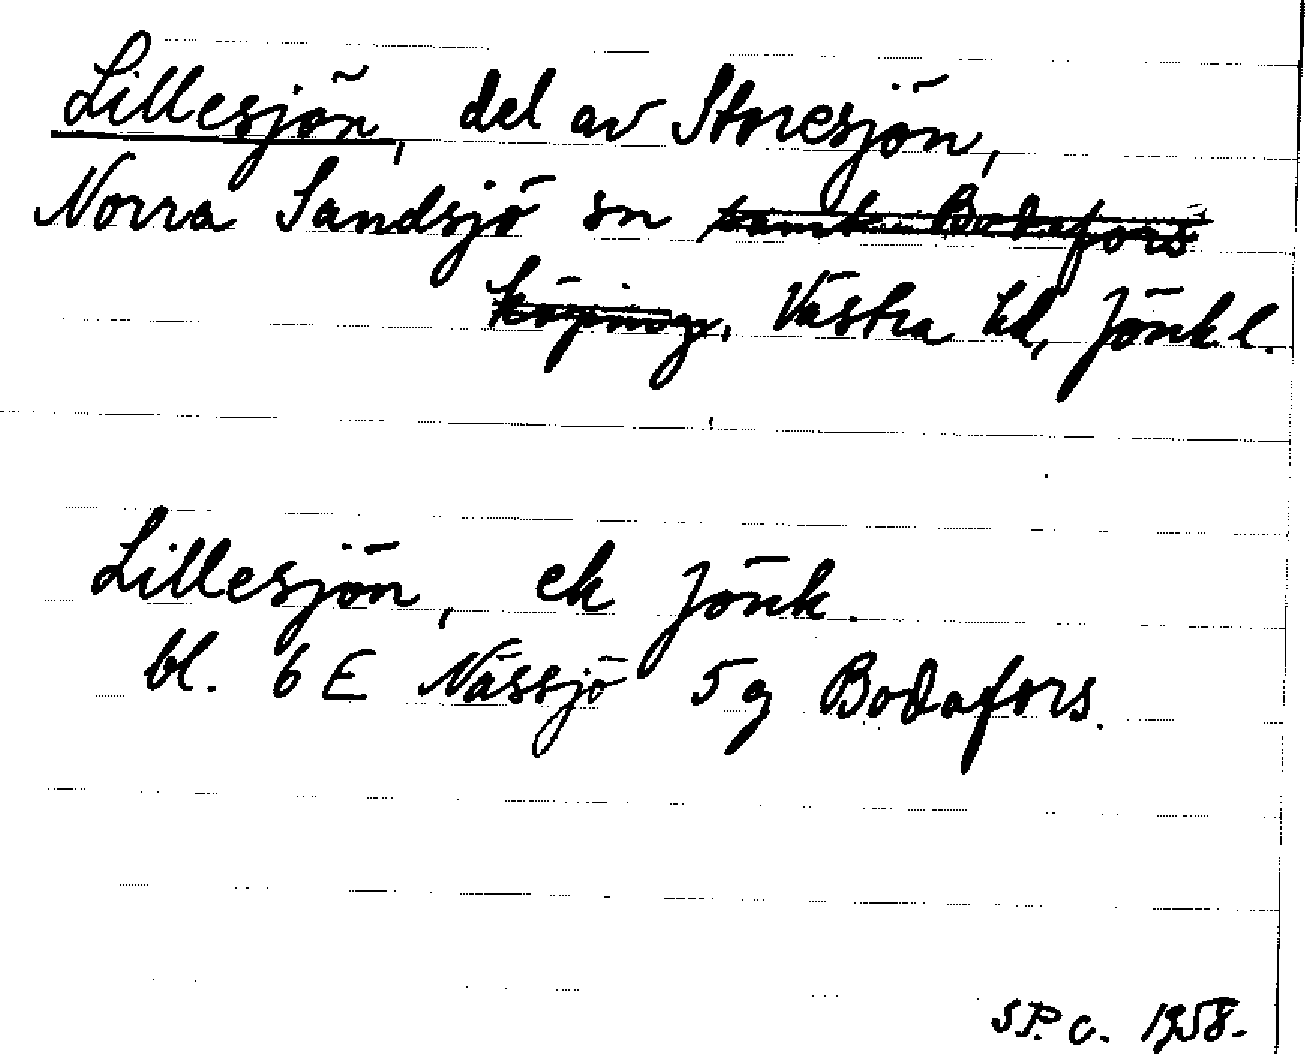 Lillesjön, del av Storesjön,
Norra Sandsjö sn samt Bodafors
köping, Västra hd, Jönk l.
Lillesjön, ek Jönk.
bl. 6 E Nässjö 5 g Bodafors.
S.P.C. 1958.